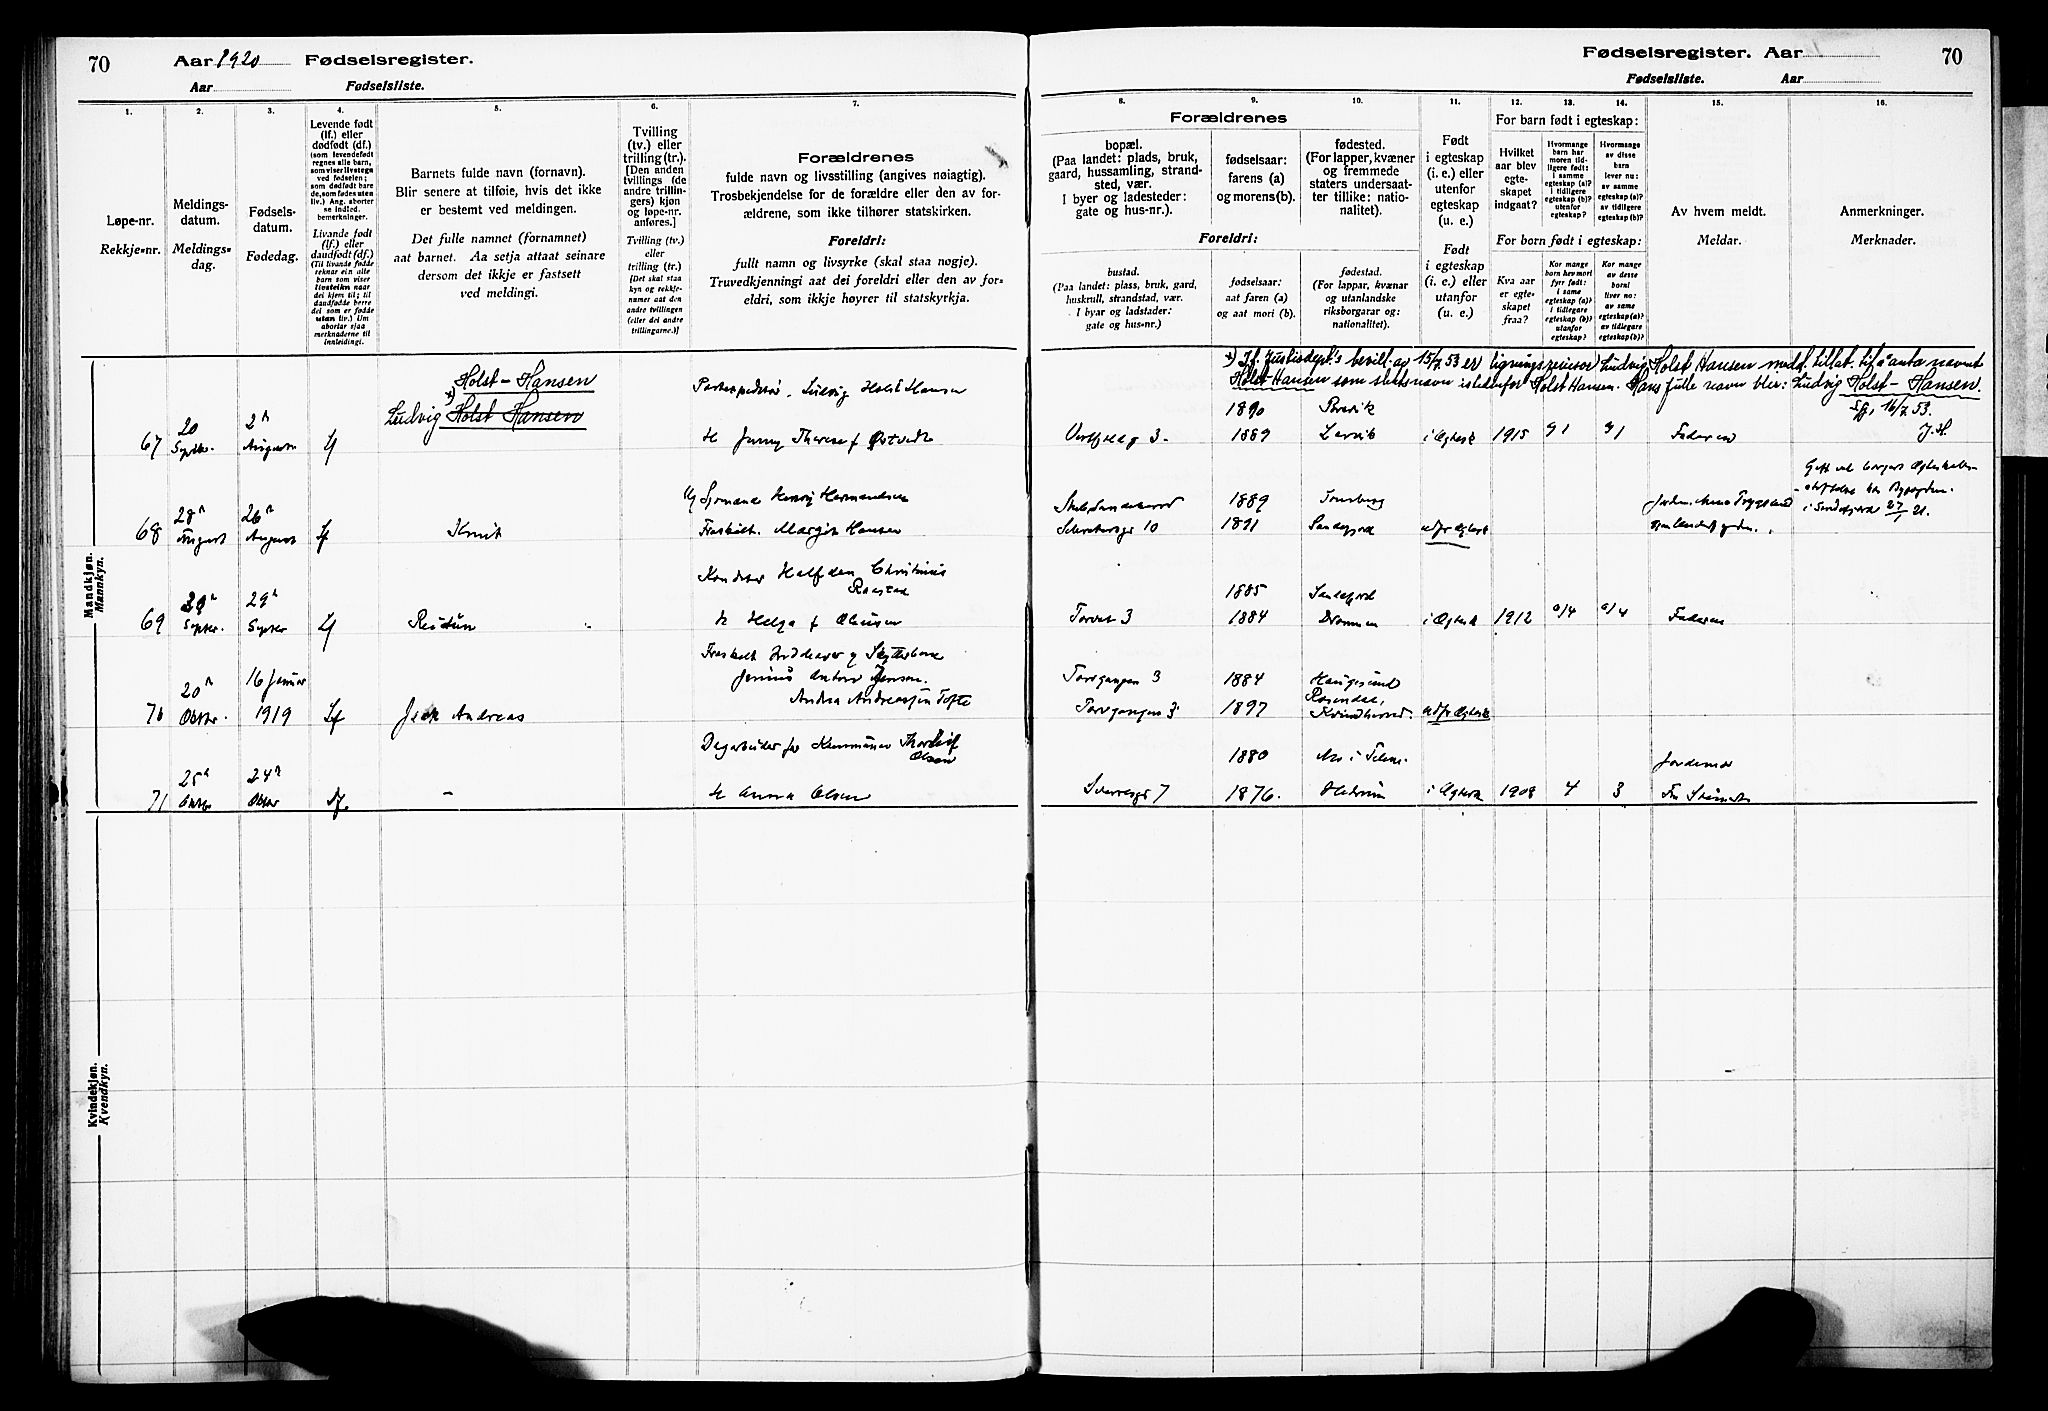 70
Aar 1920 Fødselsregister.
Aar Fødselsliste.
1.
Løpe-nr.
Rekkje-nr.
2.
Meldings-
datum.
Meldings-
dag.
3.
Fødsels-
datum.
Fødedag.
4.
Levende født
(lf.) eller
dødfødt (df.)
(som levendefødt
regnes alle barn,
som viser livstegn
ved fødselen;
som dødfødt bare
de, som fødes uten
liv.) Ang. aborter
se indled.
bemerkninger.
Livande født
(lf.) eller
daudfødt (df.)
(Til livande fødde
reknar ein alle
barn som viser
livsteikn naar
dei kjem til; til
daudfødde berre
dei som er fødde
utan liv.) Um
abortar sjaa
merknaderne til
innleidingi.
5.
Barnets fulde navn (fornavn).
Blir senere at tilføie, hvis det ikke
er bestemt ved meldingen.
Det fulle namnet (fornamnet)
aat barnet. Aa setja attaat seinare
dersom det ikkje er fastsett
ved meldingi.
6.
Tvilling
(tv.) eller
trilling (tr.).
[Den anden
tvillings (de
andre trillin-
gers) kjøn
og løpe-nr.
anføres.]
Tvilling (tv.)
eller
trilling (tr.)
[Det skal staa
kyn og rekkje-
numer aat den
andre tvillingen
(eller dei andre
trillingarne.)]
7.
Forældrenes
fulde navn og livsstilling (angives nøiagtig).
Trosbekjendelse for de forældre eller den av for-
ældrene, som ikke tilhører statskirken.
Foreldri:
fullt namn og livsyrke (skal staa nøgje).
Truvedkjenningi aat dei foreldri eller den av for-
eldri, som ikkje høyrer til statskyrkja.
Mandkjøn.
Mannkyn.
Holst-Hansen
Ludvig Holst Hansen
Ludvig Holst Hansen
67
20
Septbr.
2
August
Lf
H Jenny Therese f Østvedt
68
28
August
26
August
Lf
Knut
Ug Sømand Henry Hermandsen
Fraskilt. Margit Hansen
69
29
Septbr.
29
Septbr
Lf
Reidun
Konditor Halfdan Christinius
Raastad
H Helga f Olausen
70
20
Oktbr.
16 januar
1919
Lf
Jack Andreas
Jensen.
Andrea Andreassen Tofte
71
25
Oktbr
24
Oktbr
Df.
-
Dagarbeider for Kommunen Thorleif
Olsen
H Anna Olsen
Kvindekjøn.
Kvendkyn.
Fødselsregister. Aar
70
Fødselsliste. Aar
8.
Forældrenes
bopæl.
(Paa landet: plads, bruk,
gaard, hussamling, strand-
sted, vær.
I byer og ladesteder:
gate og hus-nr.).
Foreldri:
bustad.
(Paa landet: plass, bruk, gard,
huskrull, strandstad, vær.
I byar og ladstader:
gate og hus-nr.)
9.
fødselsaar:
farens (a)
og morens (b).
fødselsaar:
aat faren (a)
og aat mori (b).
10.
fødested.
(For lapper, kvæner
og fremmede
staters undersaat-
ter tillike: natio-
nalitet).
fødestad.
(For lappar, kvænar
og utanlandske
riksborgarar og:
nationalitet).
11.
Født
i egteskap
(i. e.) eller
utenfor
egteskap
(u. e.)
Født
i egteskap
(i. e.) eller
utanfor
(u. e.)
For barn født i egteskap:
12.
Hvilket
aar blev
egte-
skapet
indgaat?
13.
Hvormange
barn har
moren tid-
ligere født:
i samme
egteskap (a)?
i tidligere
egteskap (b)?
utenfor
egteskap?
14.
Hvormange
av disse
barn
lever nu:
av samme
egteskap (a)?
av tidligere
egteskap (b)?
For born født i egteskap:
Kva aar
er egte-
skapet
fraa?
Kor mange
barn hev mori
fyrr født:
i same
egteskap (a)?
i tidlegare
egteskap (b)?
utanfor
egteskap?
Kor mange
av desse
borni
liver no:
av same
egteskap (a)?
av tidlegare
egteskap (b)?
15.
Av hvem meldt.
Meldar.
16.
Anmerkninger.
Merknader.
x) If. Justisdept's bevill. av 15/7.53 er ligningsrevisor Ludvig Holst Hansen medd. tillat. til å anta navnet
Holst-Hansen som slektsnavn istedenfor Holst Hansen. Hans fulle navn blir: Ludvig Holst-Hansen.
Sfj. 16/7.53.
J.H.
1890
3
1889
Larvik
i Egtesk
1915
a/1
a/1
Faderen
1889
Tønsberg
10
1891
Sandefjord
udfr Egtesk
i Sandefjord 27/1 21.
1885
Sandefjord
Torvet 3
1884
Drammen
i Egtesk
1912
a/4
a/4
Faderen
Torvgangen 3
1884
Haugesund
Torvgangen 3
1897
Rosendal,
Kvindherred.
udfr Egtesk
1880
7
1876.
Hedrum
i Egtesk
1908
4
3
Jordemor